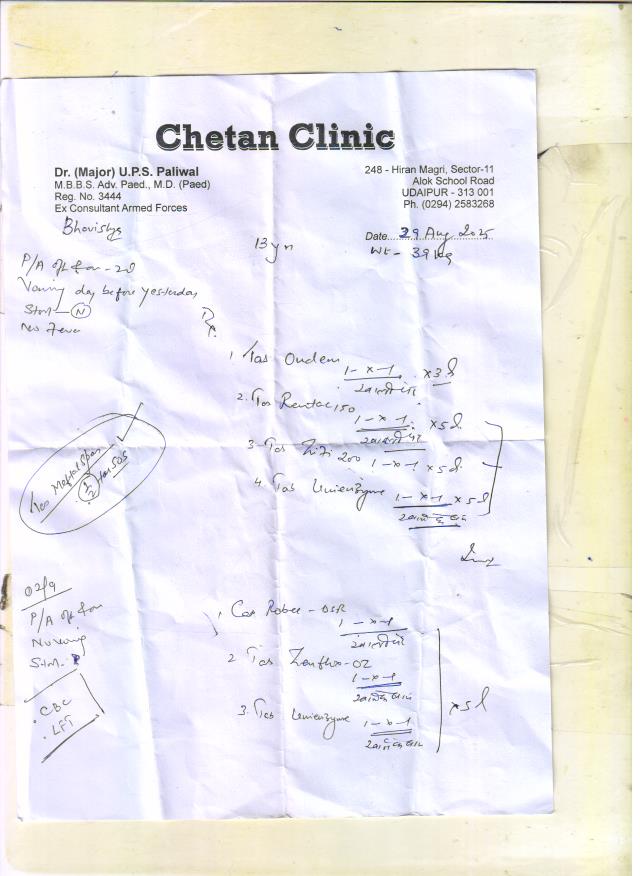 Chetan Clinic
Dr. (Major) U.P.S. Paliwal
M.B.B.S. Adv. Paed., M.D. (Paed)
Reg. No. 3444
Ex Consultant Armed Forces
248 - Hiran Magri, Sector-11
Alok School Road
UDAIPUR - 313 001
Ph. (0294) 2583268
Bhavishya
13 yr
Date 29 Aug 2025
Wt - 39 kg
P/A
day before yesterday
Stool - N
No Fever
Rx
1. Tab Ondem
1-x-1 x3d
2. Tab Rantac 150
1-x-1 x5d
3. Tab Zifi 200 1-x-1 x5d
4. Tab Unienzyme 1-x-1 x5d
Tab Meftal Spas
1/2 tab SOS
02/9
P/A
Stool
CBC
LFT
1. Cap Rabee-DSR
1-x-1
2 Tab -OZ
1-x-1
3. Tab Unienzyme
1-x-1
x5d